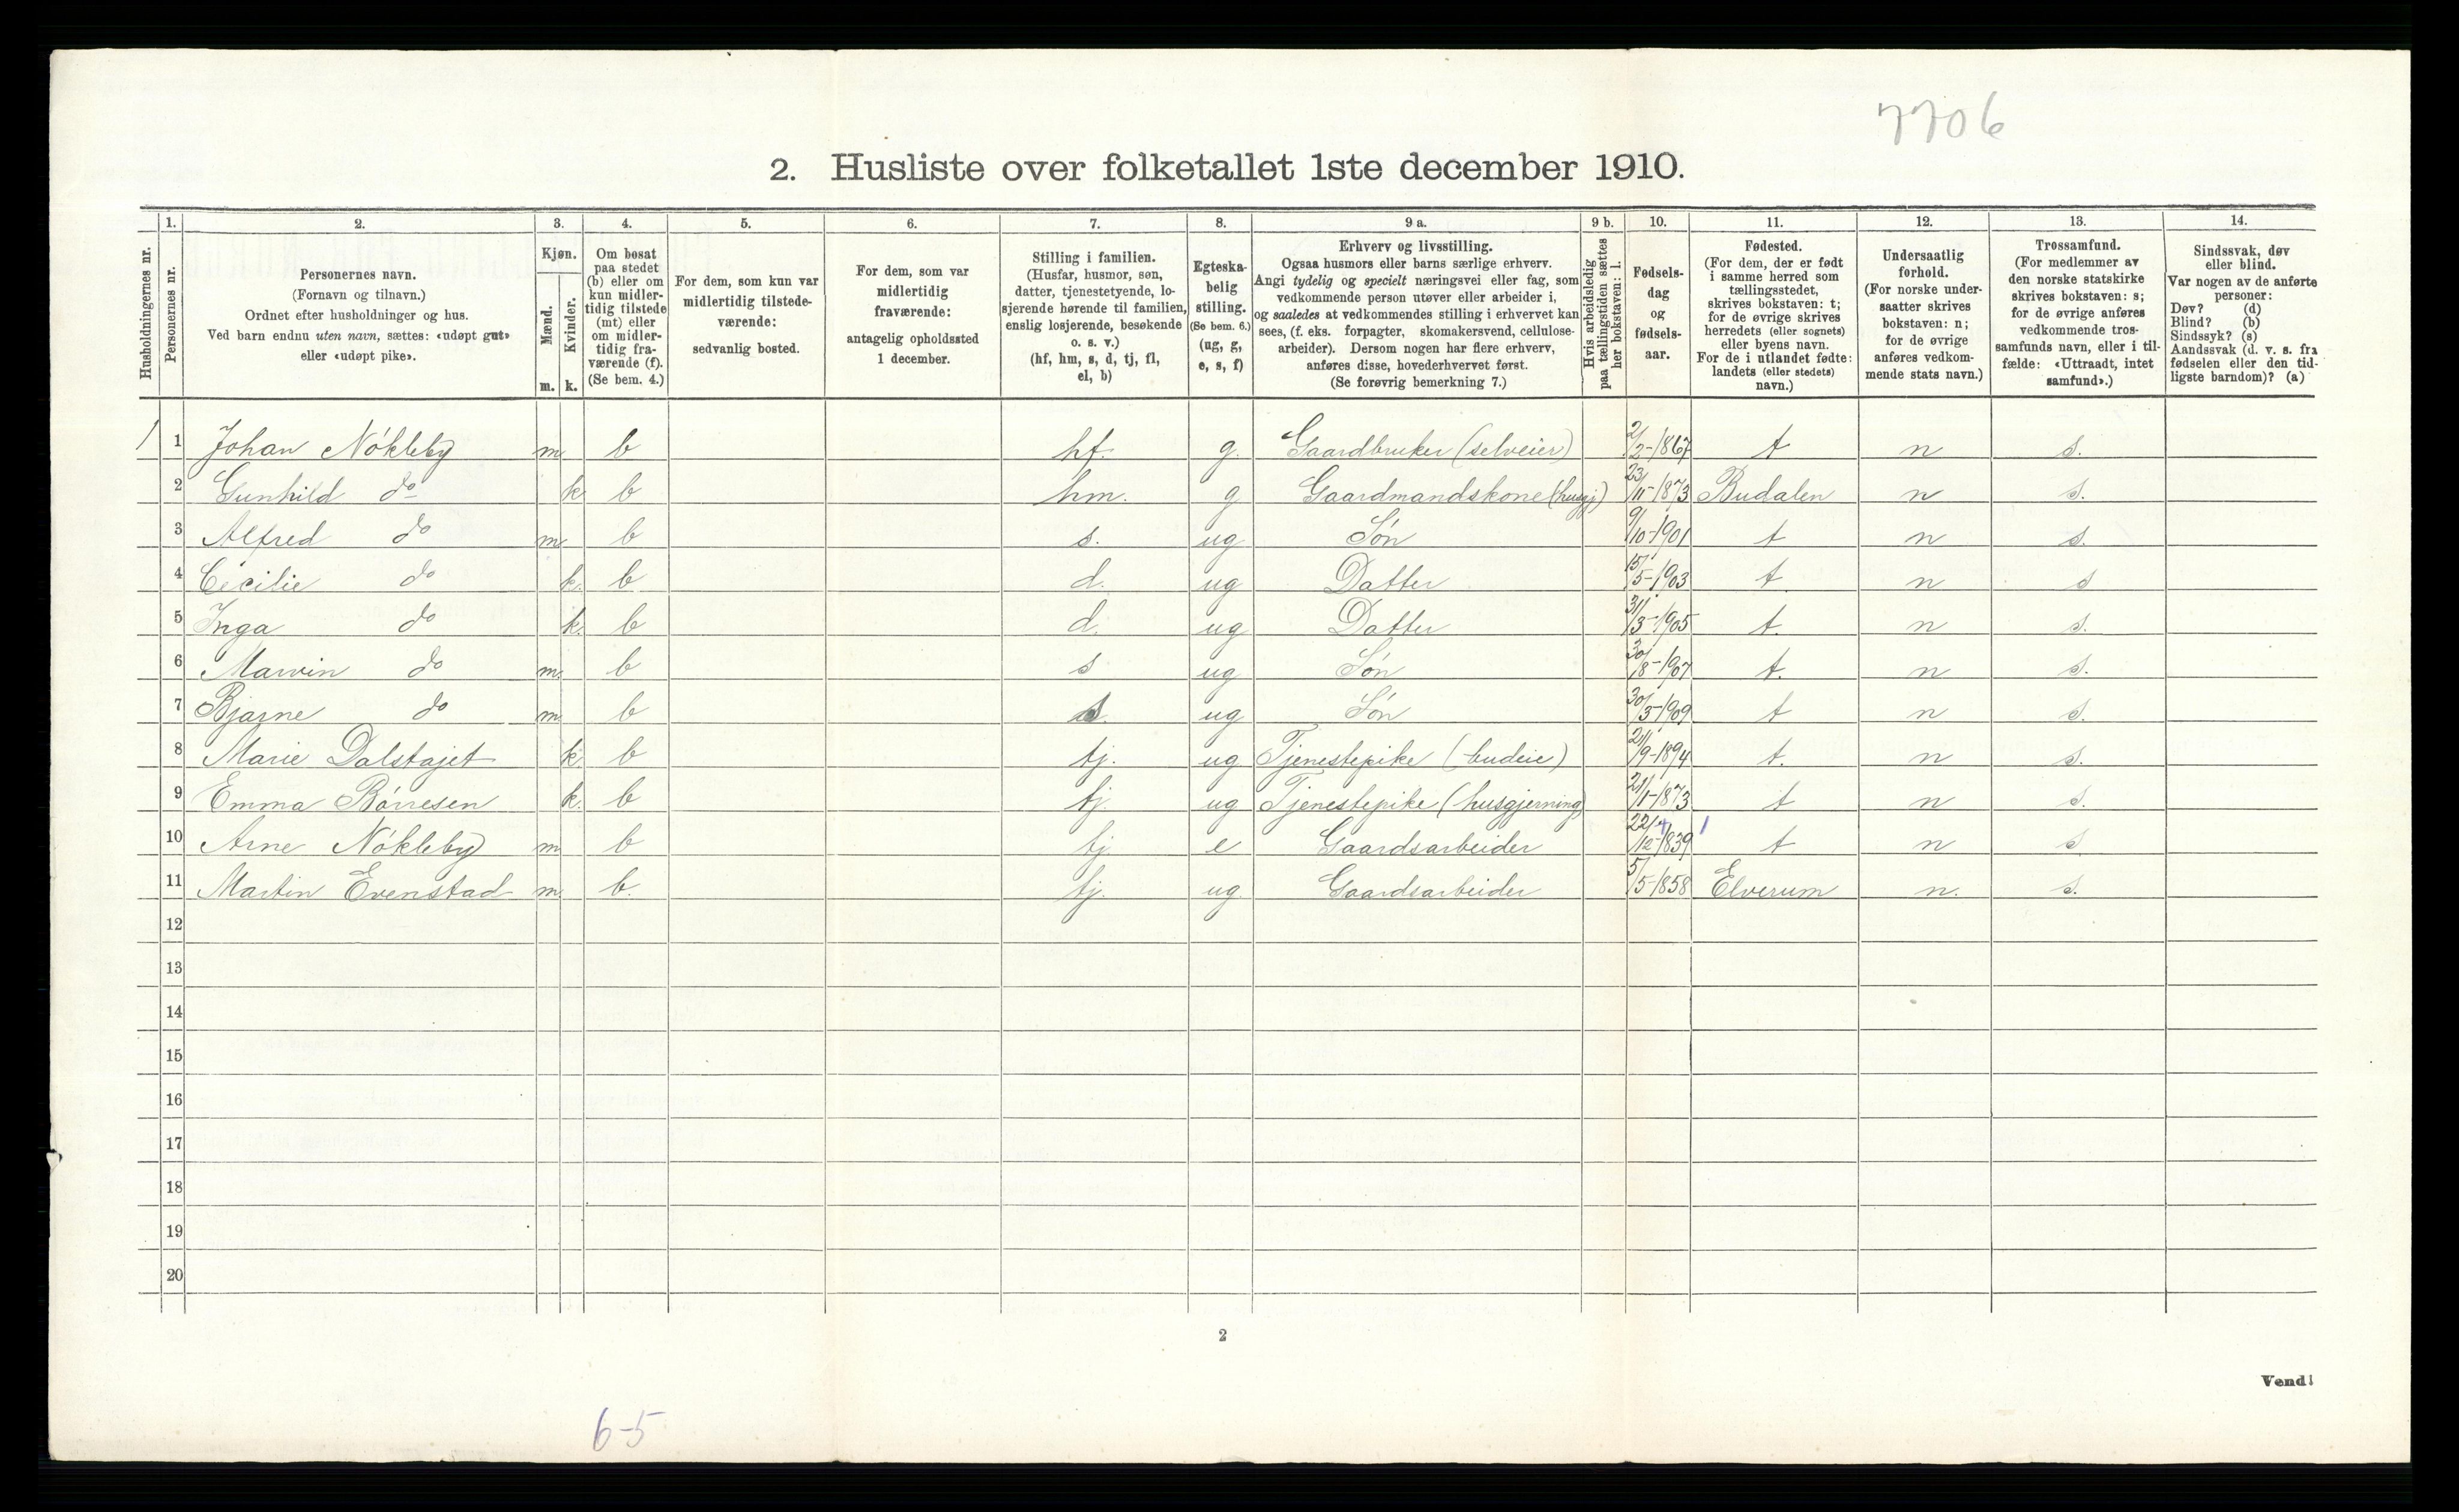 7706
2. Husliste over folketallet 1ste december 1910.
Husholdningernes nr.
1. Personernes nr.
2. Personernes navn.
(Fornavn og tilnavn.)
Ordnet efter husholdninger og hus.
Ved barn endnu uten navn, sættes: «udøpt gut»
eller «udøpt pike».
3. Kjøn.
Mænd. m.
Kvinder. k.
4. Om bosat
paa stedet
(b) eller om
kun midler-
tidig tilstede
(mt) eller
om midler-
tidig fra-
værende (f).
(Se bem. 4.)
5. For dem, som kun var
midlertidig tilstede-
værende:
sedvanlig bosted.
6. For dem, som var
midlertidig
fraværende:
antagelig opholdssted
1 december.
7. Stilling i familien.
(Husfar, husmor, søn,
datter, tjenestetyende, lo-
sjerende hørende til familien,
enslig losjerende, besøkende
o. s. v.)
(hf, hm, s, d, tj, fl,
el, b)
8. Egteska-
belig
stilling.
(Se bem. 6.)
(ug, g,
e, s, f)
9 a. Erhverv og livsstilling.
Ogsaa husmors eller barns særlige erhverv.
Angi tydelig og specielt næringsvei eller fag, som
vedkommende person utøver eller arbeider i,
og saaledes at vedkommendes stilling i erhvervet kan
sees, (f. eks. forpagter, skomakersvend, cellulose-
arbeider). Dersom nogen har flere erhverv,
anføres disse, hovederhvervet først.
(Se forøvrig bemerkning 7.)
9 b. Hvis arbeidsledig
paa tællingstiden sættes
her bokstaven: l.
10. Fødsels-
dag
og
fødsels-
aar.
11. Fødested.
(For dem, der er født
i samme herred som
tællingsstedet,
skrives bokstaven: t;
for de øvrige skrives
herredets (eller sognets)
eller byens navn.
For de i utlandet fødte:
landets (eller stedets)
navn.)
12. Undersaatlig
forhold.
(For norske under-
saatter skrives
bokstaven: n;
for de øvrige
anføres vedkom-
mende stats navn.)
13. Trossamfund.
(For medlemmer av
den norske statskirke
skrives bokstaven: s;
for de øvrige anføres
vedkommende tros-
samfunds navn, eller i til-
fælde: «Uttraadt, intet
samfund».)
14. Sindssvak, døv
eller blind.
Var nogen av de anførte
personer:
Døv? (d)
Blind? (b)
Sindssyk? (s)
Aandssvak (d. v. s. fra
fødselen eller den tid-
ligste barndom)? (a)
1 1 Johan Nókleby m b hf. g. Gaardbruker (selveier) 2/2-1867 t n s.
2 Gunhild do k b hm. g Gaardmandskone (husgj) 23/11-1873 Budalen n s.
3 Alfred do m b s. ug Són 9/10-1901 t n s.
4 Cecilie do k. b d. ug Datter 15/5-1903 t. n s
5 Inga do k. b d. ug Datter 31/3-1905 t. n s.
6 Marvin do m. b s ug Són 30/8-1907 t. n s.
7 Bjarne do m b s. ug Són 30/3-1909 t n s.
8 Marie Dalstøjet k b tj. ug Tjenestepike (budeie) 21/9-1894 t. n s.
9 Emma Bórresen k. b tj. ug Tjenestepike (husgjerning) 21/1-1873 t n s.
10 Arne Nókleby m b tj. e Gaardsarbeider 22/12-1839 t n s
11 Martin Evenstad m. b. tj. ug. Gaardsarbeider 5/5-1858 Elverum n. s.
12
13
14
15
16
17
18
19
20
2
Vend!
6-5